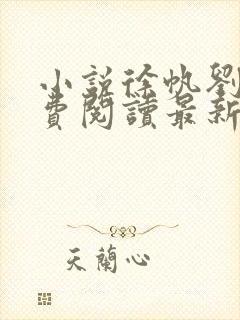 小說徐帆劉
費閱讀最新
天蘭心